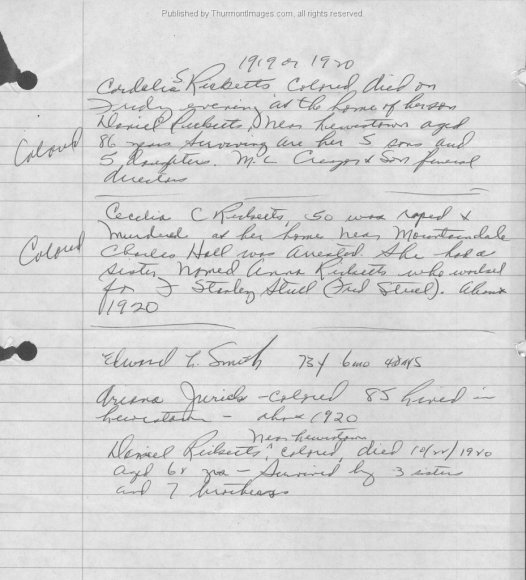 Published by ThurmontImages.com, all rights reserved.
1919 or 1920
Cordelia S Ricketts, Colored died on
Friday evening at the home of her son
Daniel Ricketts, Near Lewistown aged
86 years Surviving are her 5 sons and
Colored
5 daughters. M. L. Creager & Son funeral
directors
Cecelia C Ricketts, 50 was raped &
murdered at her home near Mountaindale
Colored
Charles Hall was arrested She had a
sister Named Anna Ricketts who worked
for J Stanley Stull (Fred Stull). About
1920
Edward L. Smith 73y 6mo 4days
- colored 85 lived in
Lewistown - abt 1920
Near Lewistown
Daniel Ricketts, colored, died 10/22/1920
aged 68 yrs - Survived by 3 sisters
and 7 brothers